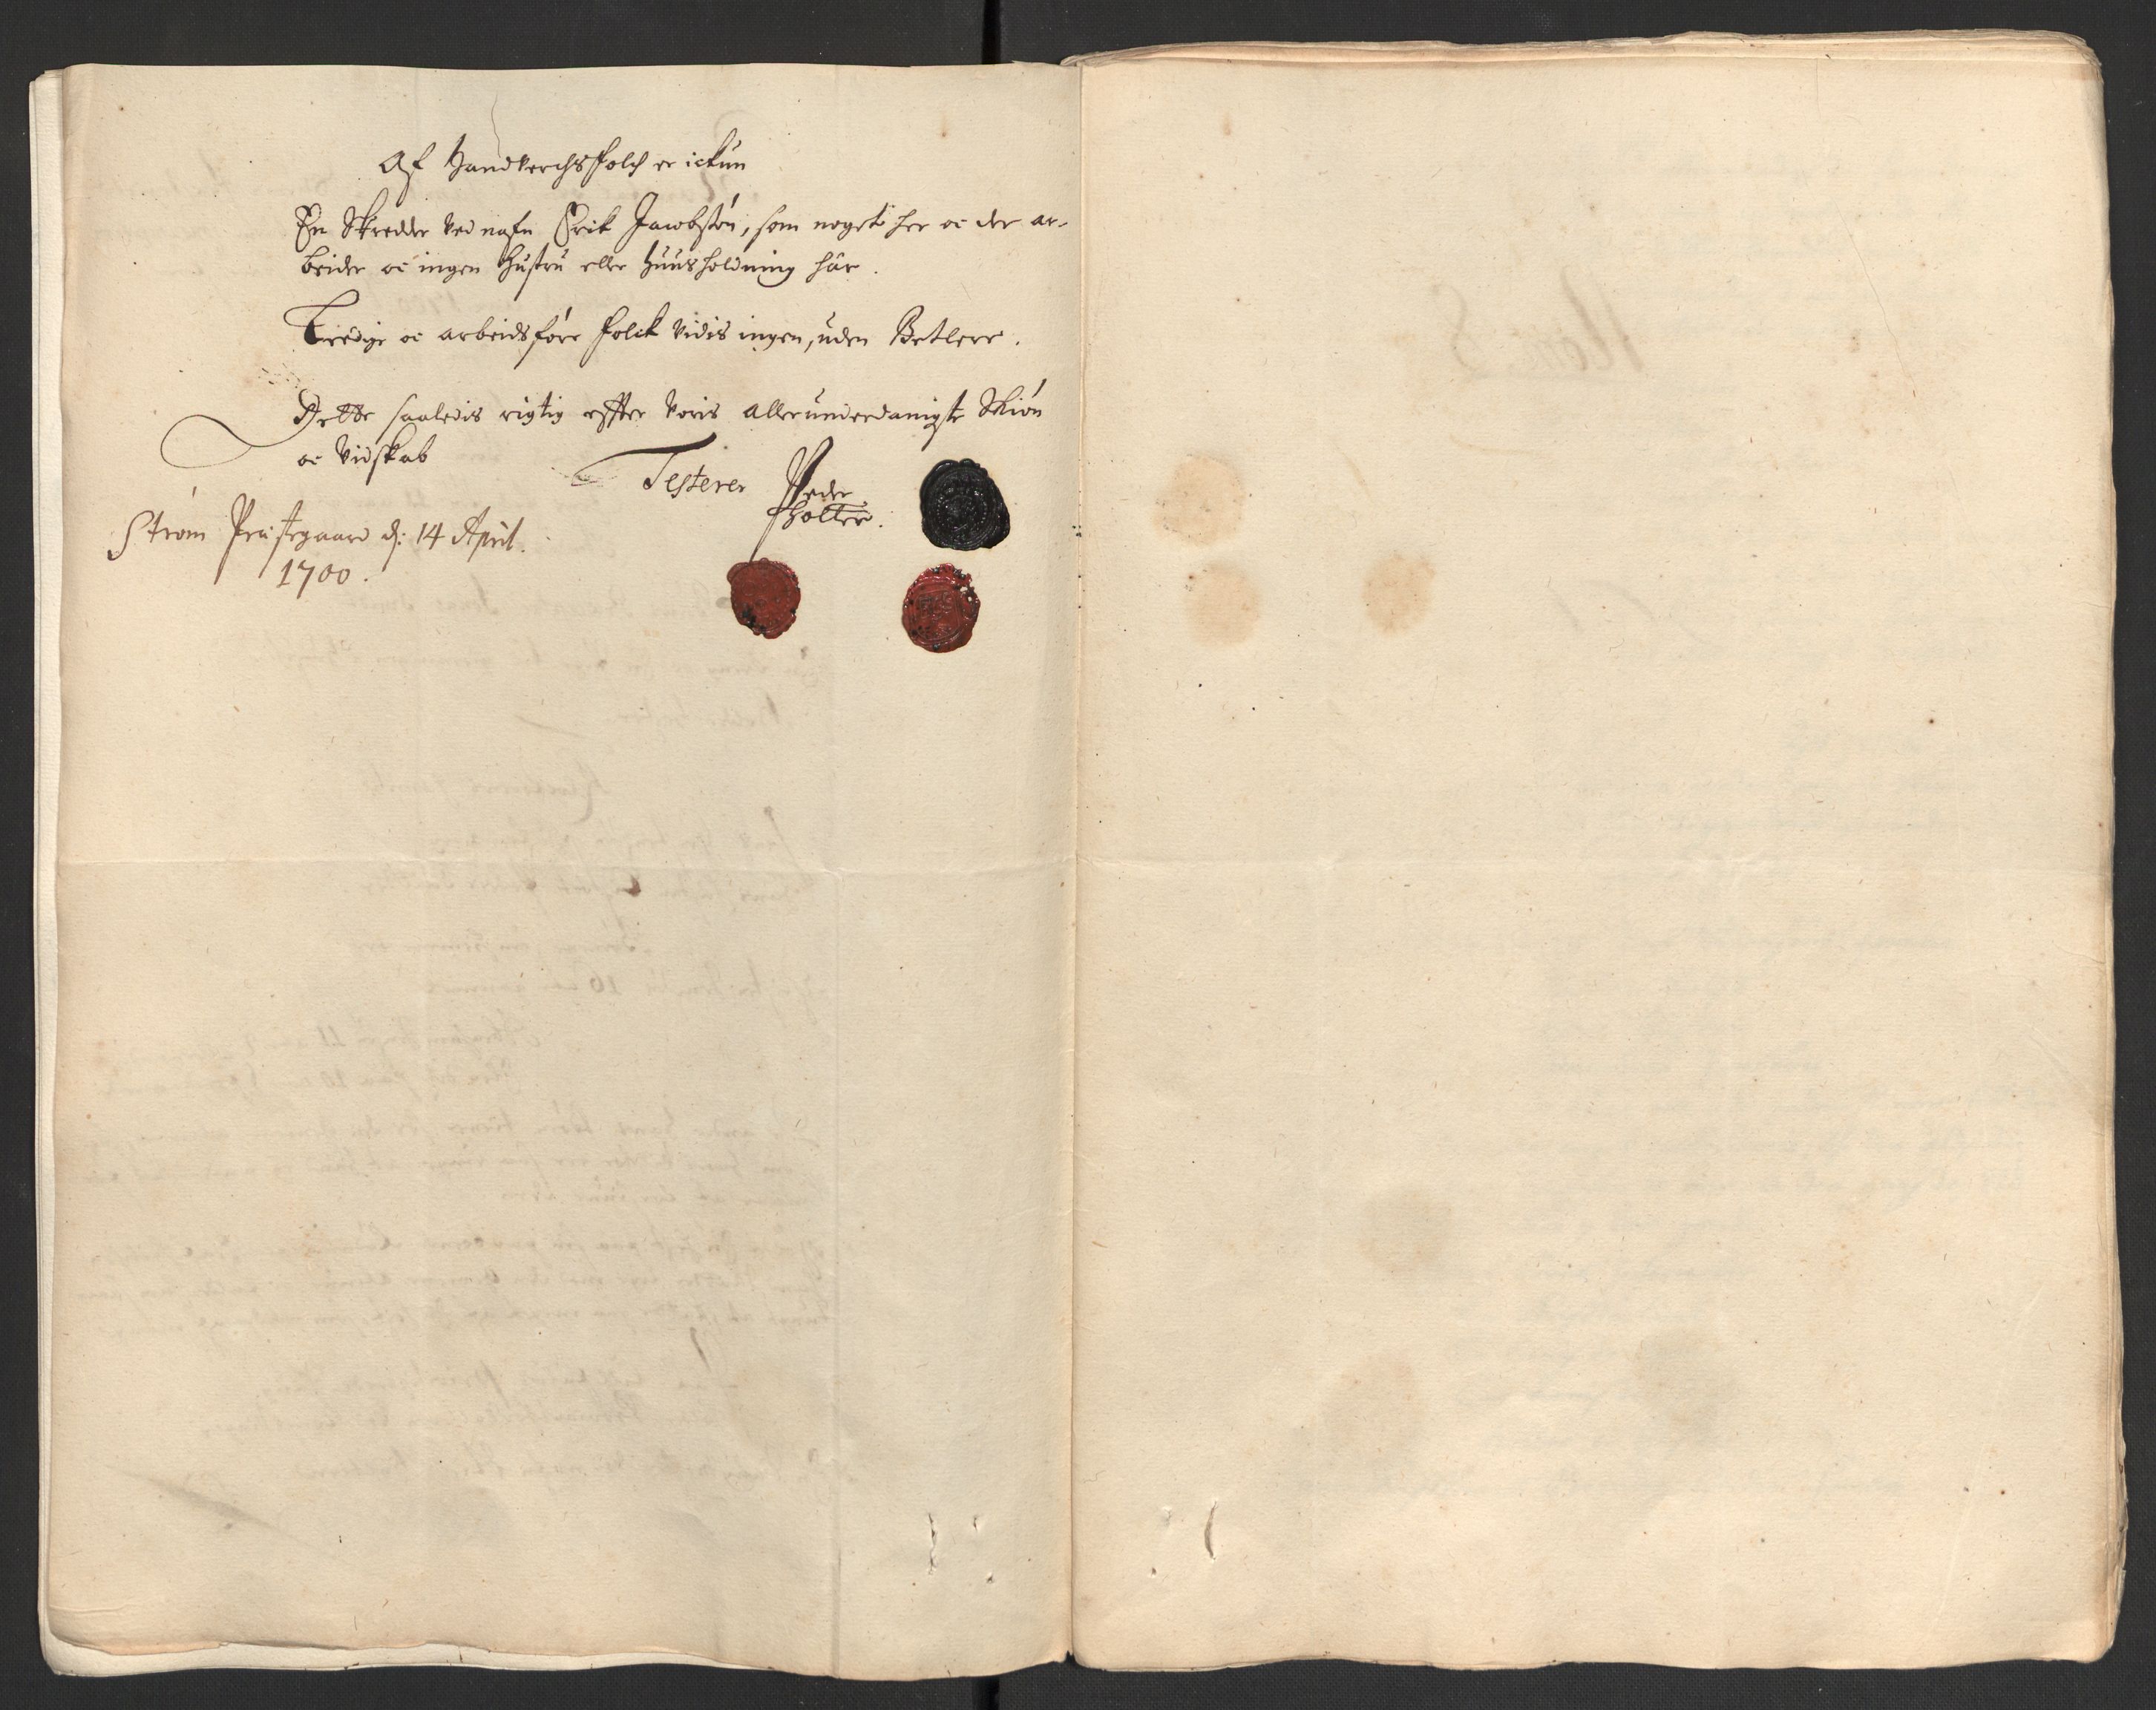 Af Handverchsfolch er ickun
En Skredder ved nafn Erik Jacobsøn, som noget her oc der ar-
beider oc ingen Hustru eller Huusholdning hår.
Ledige oc arbeidsføre folck vidis ingen, uden Betlere.
Dette saaledis rigtig effter voris allerunderdanigste Skiøn
oc vidskab
Testerer Peder
Holter.
Strøm Præstegaard d: 14 April.
1700.